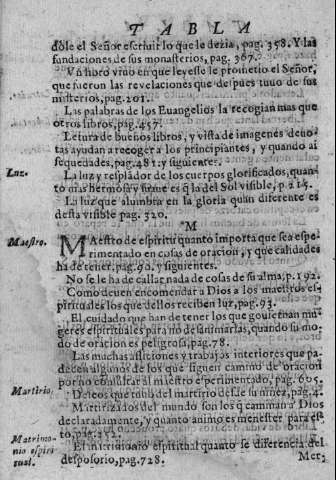 TABLA
dole el Señor escriuir lo que le dezia, pag. 358. Y las
fundaciones de sus monasterios, pag. 367.
Vn libro viuo en que leyesse le prometio el Señor,
que fueron las reuelaciones que despues tuuo de sus
misterios, pag. 201.
Las palabras de los Euangelios la recogian mas que
otros libros, pag. 457.
Letura de buenos libros, y vista de imagenes deuo-
tas ayudan a recoger a los principiantes, y quando ai
sequedades, pag. 481. y siguiente.
Luz.
La luz y resplãdor de los cuerpos glorificados, quan-
to mas hermosa y suaue es q̃ la del Sol visible, p. 215.
La luz que alumbra en la gloria quan diferente es
desta visible pag. 320.
M
Maestro.
MAestro de espiritu quanto importa que sea espe-
rimentado en cosas de oracion, y que calidades
ha de tener, pag. 90. y siguientes.
No se le ha de callar nada de cosas de su alma, p. 192.
Como deuen encomendar a Dios a los maestros es-
pirituales los que dellos reciben luz, pag. 93.
El cuidado que han de tener los que gouiernan mu-
geres espirituales para no desanimarlas, quando su mo-
do de oracion es peligrosa, pag. 78.
Las muchas afliciones y trabajos interiores que pa-
decen algunos de los que siguen camino de oracion
por no consultar al maestro esperimentado, pag. 605.
Martirio.
Deseos que tuuo del martirio desde su niñez, pag. 4.
Martirizados del mundo son los q̃ caminan a Dios
declaradamente, y quanto animo es menester para es-
to, pag. 352.
Matrimo-
nio espiri-
tual.
El matrimonio espiritual quanto se diferencia del
desposorio, pag. 728.
Mer-